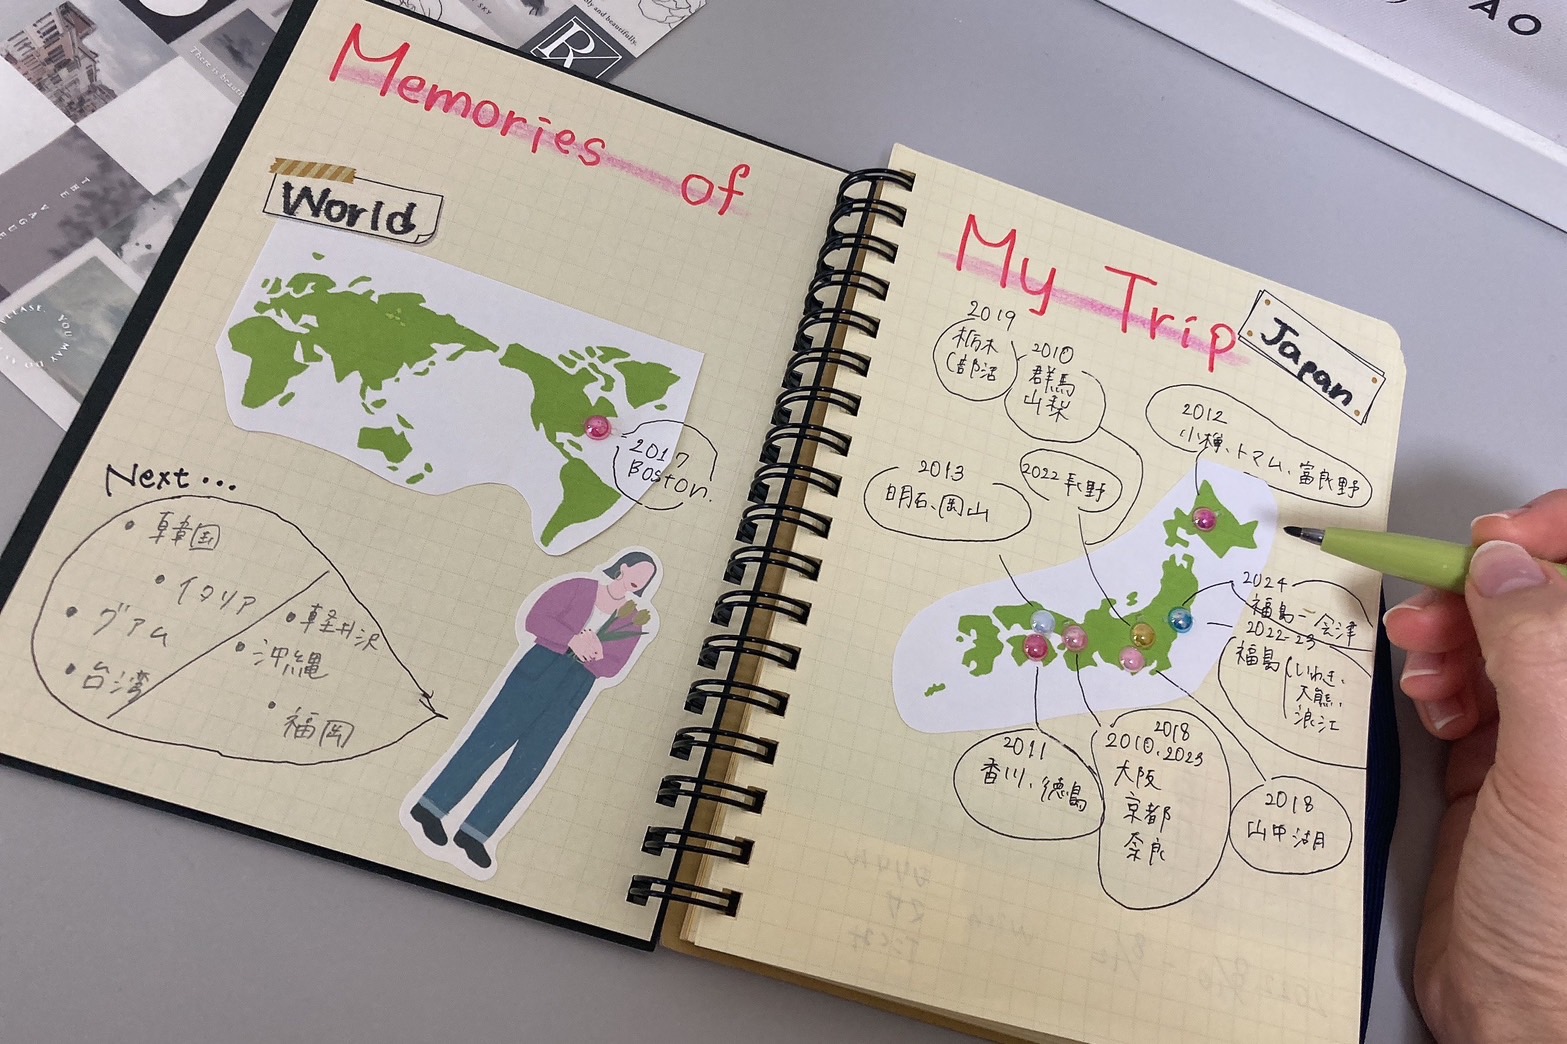 Memories of
World
2017
Boston.
Next...
・韓国
・イタリア
・グアム
・台湾
・軽井沢
・沖縄
・福岡
My Trip
Japan
2019
栃木
(部活
2010
群馬
山梨
2012
小樽、トマム、富良野
2013
明石、岡山
2022 長野
2024
福島-会津
2022-23
福島(いわき、
大熊、
浪江
2011
香川、徳島
2018
2010、2023
大阪
京都
奈良
2018
山中湖
R
THE VAGUE
PLEASE YOU MAY
AO